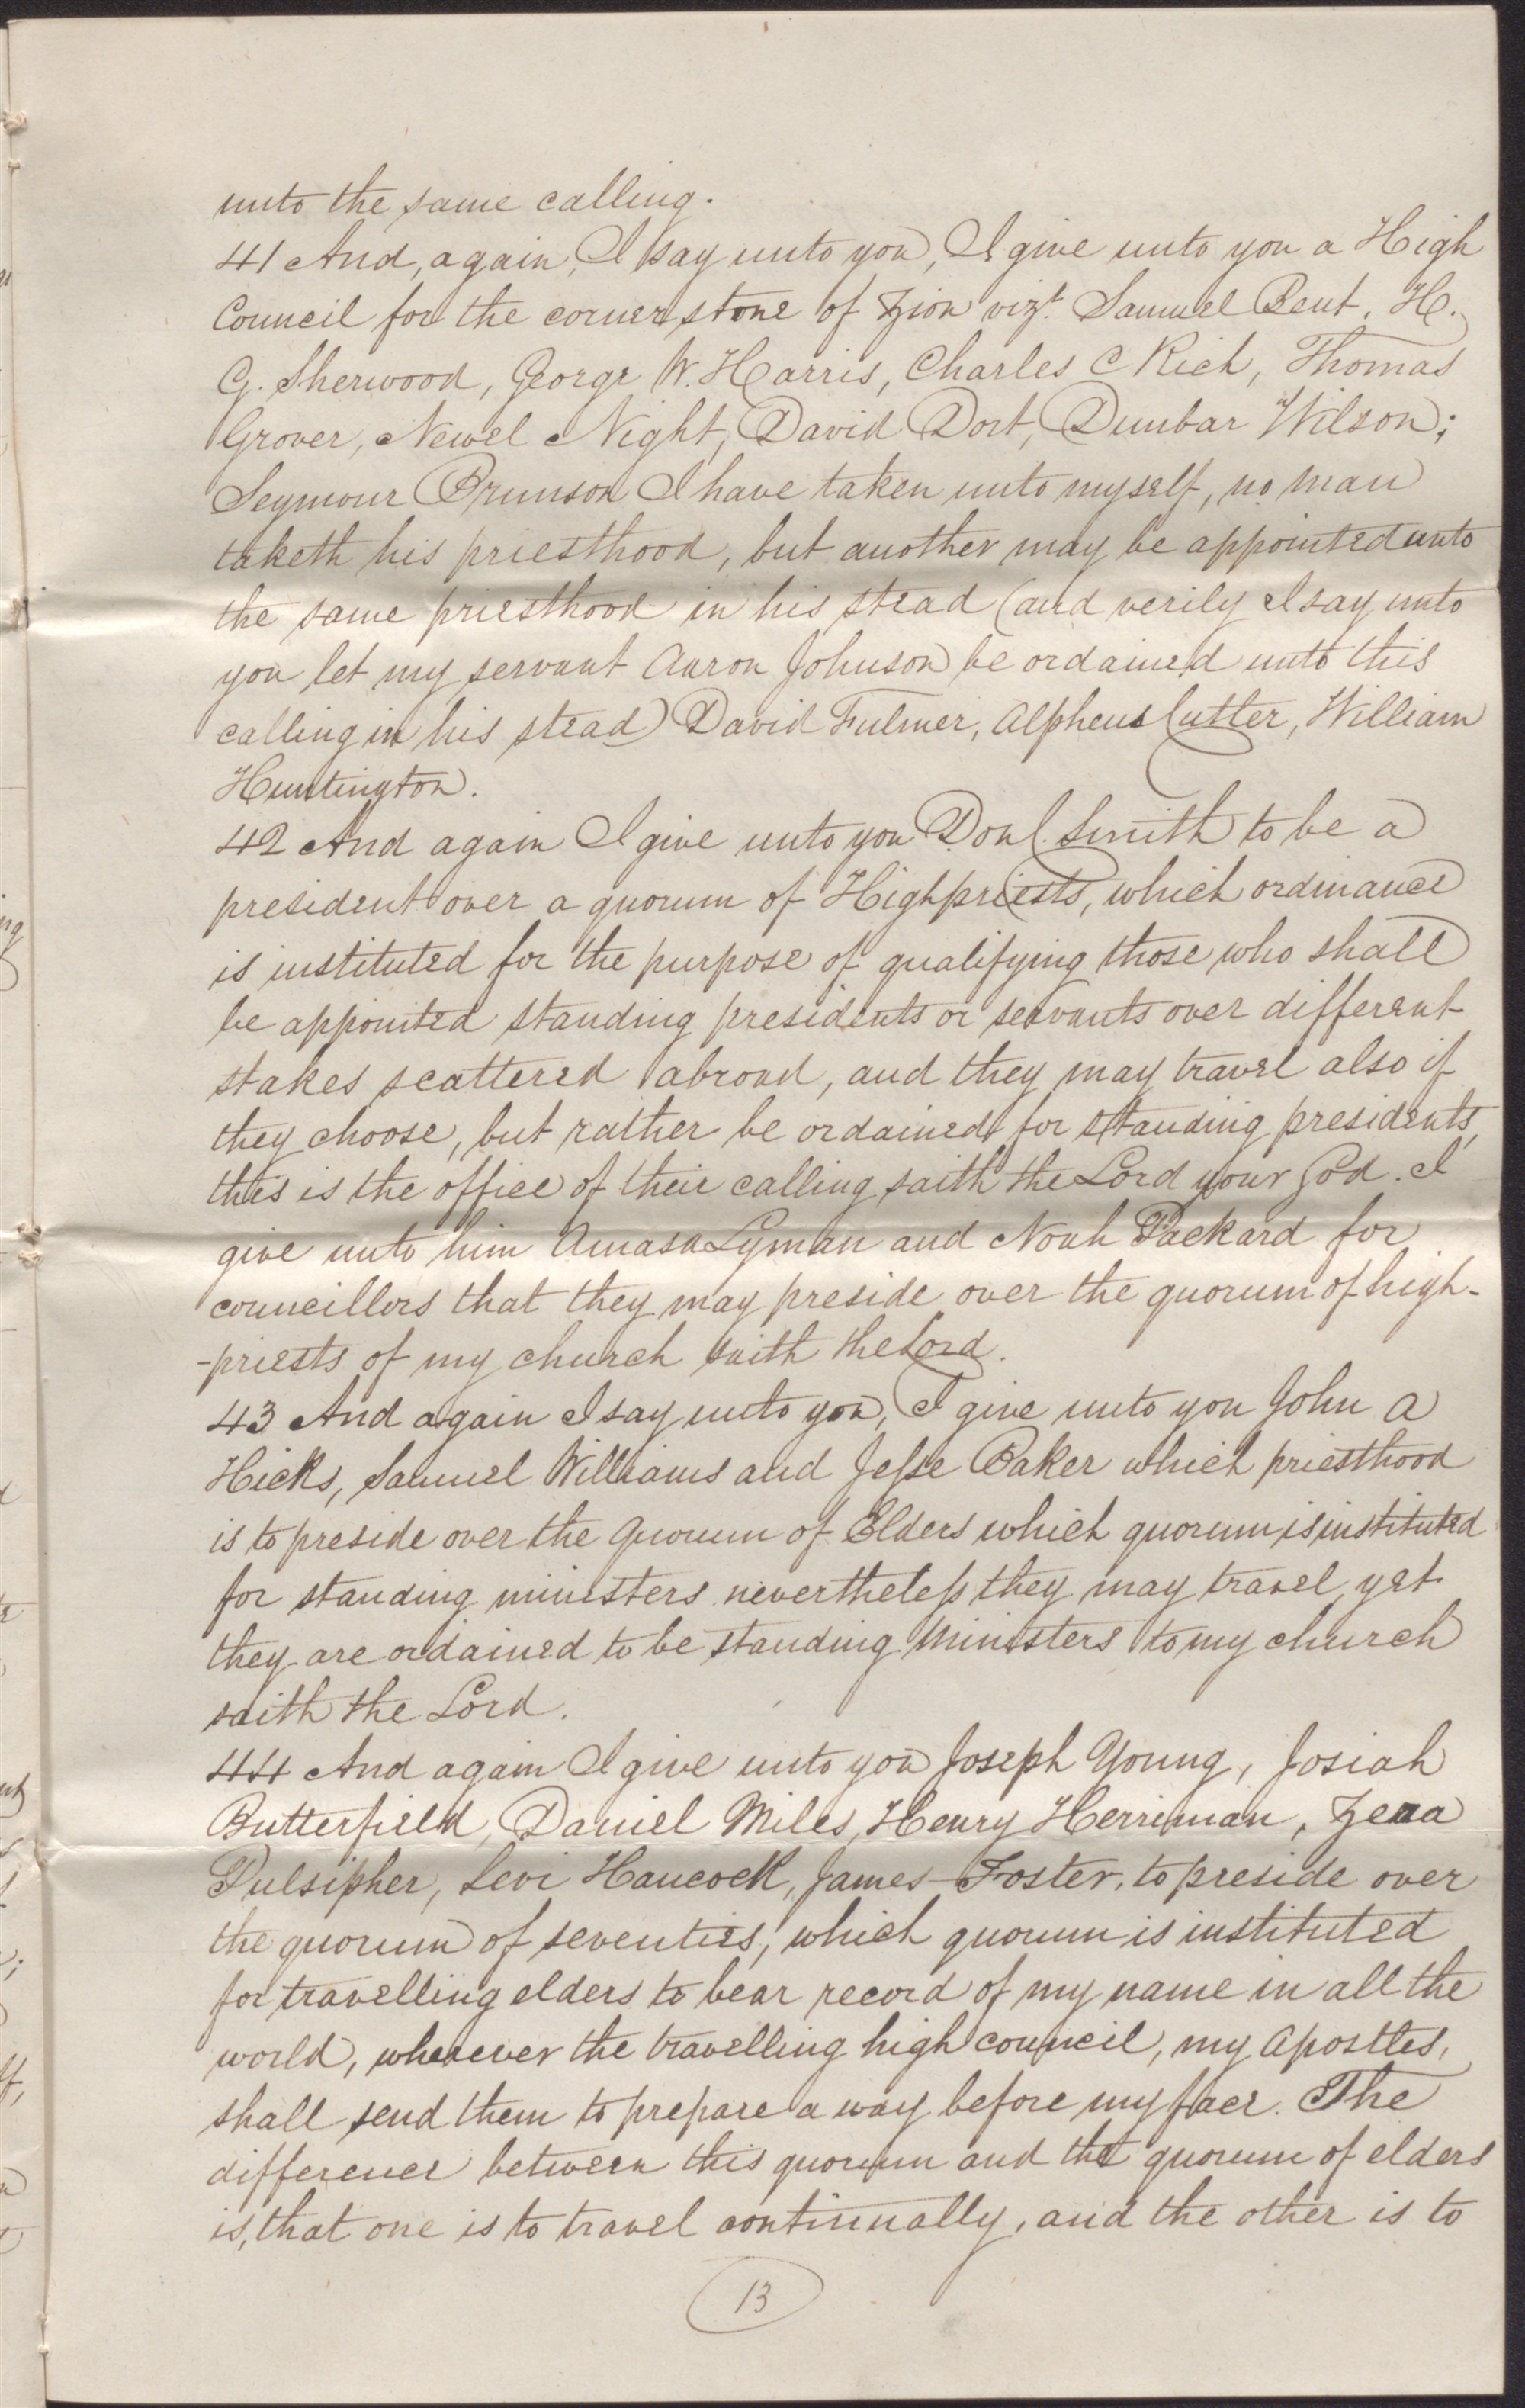 unto the same calling.
41 And, again, I say unto you, I give unto you a High
Council for the corner stone of Zion vizt. Samuel Bent, H.
G. Sherwood, George W. Harris, Charles C Rich, Thomas
Grover, Newel Night, David Dort, Dunbar Wilson;
Seymour Brunson I have taken unto myself, no man
taketh his priesthood, but another may be appointed unto
the same priesthood in his stead (and verily I say unto
you let my servant Aaron Johnson be ordained unto this
calling in his stead) David Fulmer, Alpheus Cutter, William
Huntington.
42 And again I give unto you Don C. Smith to be a
president over a quorum of Highpriests, which ordinance
is instituted for the purpose of qualifying those who shall
be appointed standing presidents or servants over different
stakes scattered abroad, and they may travel also if
they choose, but rather be ordained for standing presidents,
this is the office of their calling saith the Lord your God. I
give unto him Amasa Lyman and Noah Packard for
councillors that they may preside over the quorum of high-
-priests of my church saith the Lord.
43 And again I say unto you, I give unto you John A
Hicks, Samuel Williams and Jesse Baker which priesthood
is to preside over the quorum of Elders which quorum is instituted
for standing ministers nevertheless they may travel, yet
they are ordained to be standing ministers to my church
saith the Lord.
44 And again I give unto you Joseph Young, Josiah
Butterfield, Daniel Miles, Henry Herriman, Zera
Pulsipher, Levi Hancock, James Foster, to preside over
the quorum of seventies, which quorum is instituted
for travelling elders to bear record of my name in all the
world, wherever the travelling high council, my apostles,
shall send them to prepare a way before my face. The
difference between this quorum and the quorum of elders
is, that one is to travel continually, and the other is to
13